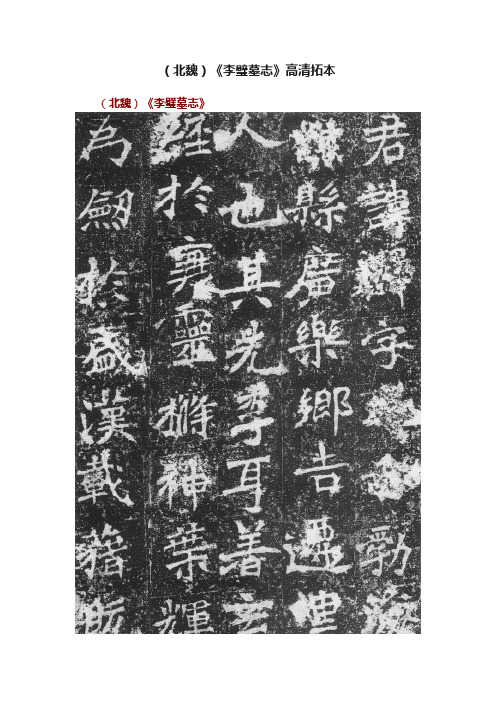 （北魏）《李璧墓志》高清拓本
（北魏）《李璧墓志》
君諱璧字勃海
縣廣樂鄉吉遷里
人也其先李耳善玄
經於衰靈神葉輝
為劒於盛漢載籍所